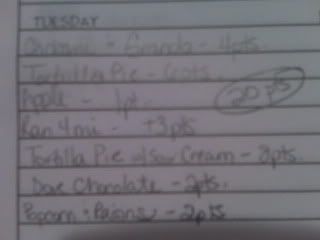 TUESDAY
- Granola - 4pts.
Tortilla Pie - 6pts.
Apple - 1pt.
20 pts
Ran 4mi - +3pts
Tortilla Pie w/Sour Cream - 8pts.
Dove Chocolate - 2pts.
Popcorn + - 2pts